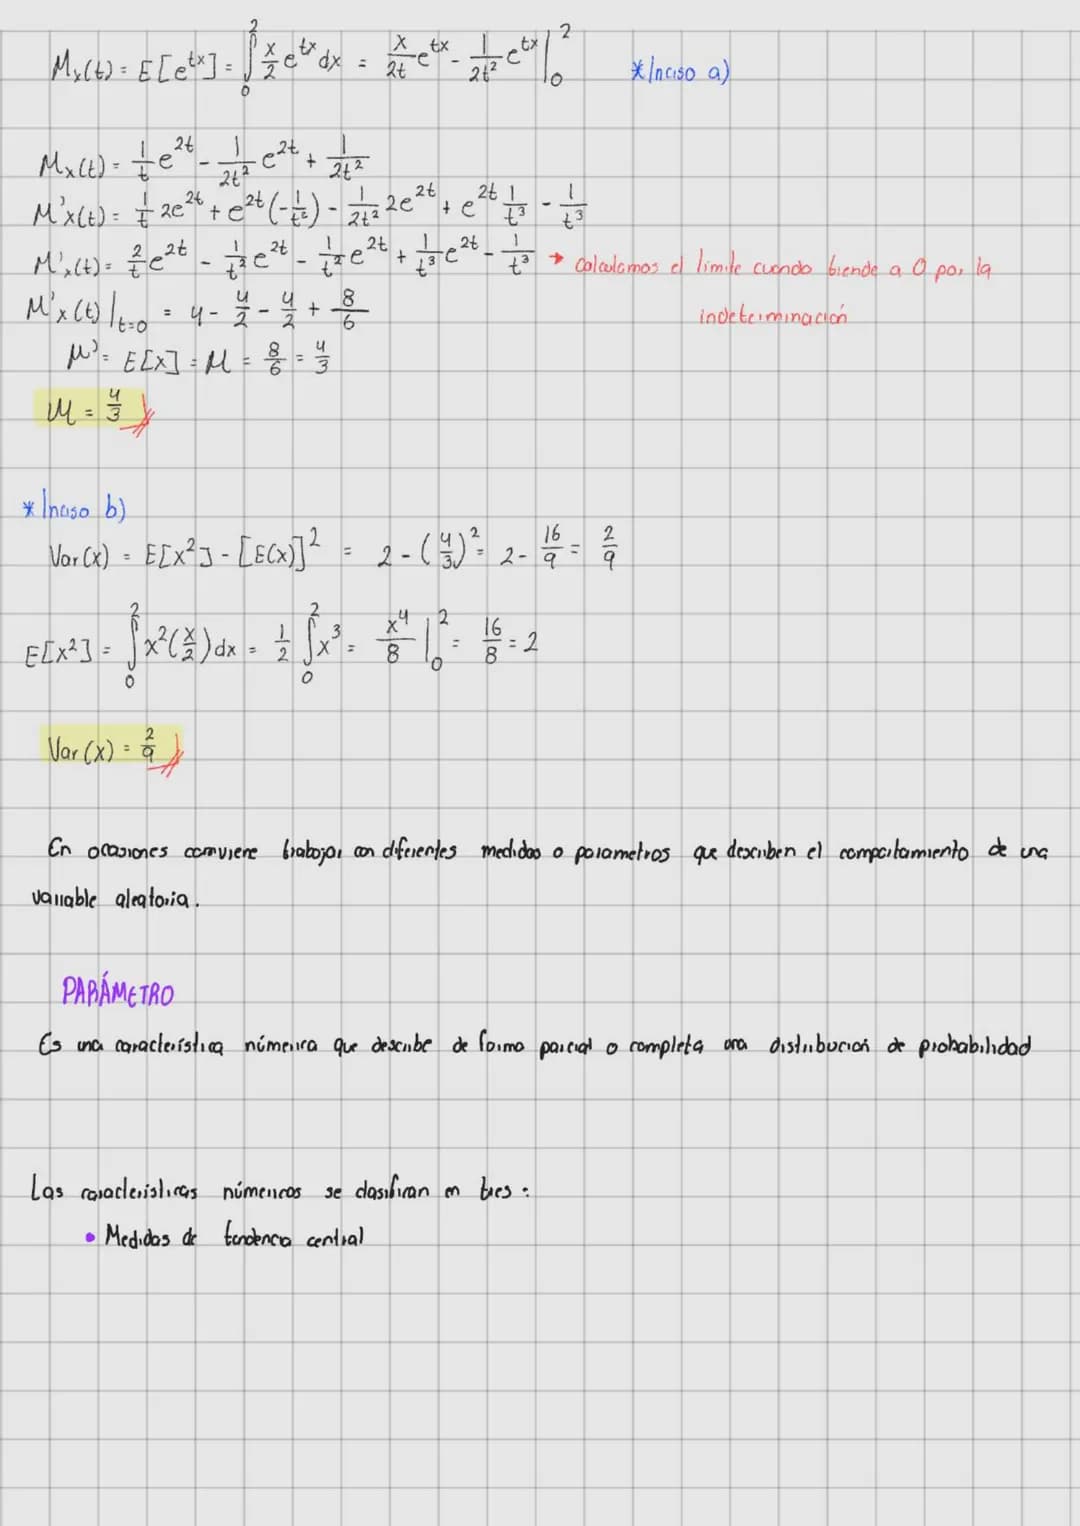 Mx(t) = E[e^{tx}] = ∫_0^2 x/2 e^{tx} dx = x/2t e^{tx} - 1/2t² e^{tx} |_0^2 *Inciso a)
Mx(t) = 1/t e^{2t} - 1/2t² e^{2t} + 1/2t²
M'x(t) = 1/t 2e^{2t} + e^{2t} (-1/t²) - 1/2t² 2e^{2t} + e^{2t} 1/t³ - 1/t³
M'x(t) = 2/t e^{2t} - 1/t² e^{2t} - 1/t² e^{2t} + 1/t³ e^{2t} - 1/t³ → Calculamos el limite cuando tiende a 0 por la
indeterminación
M'x(t) |_{t=0} = 4 - 4/2 - 4/2 + 8/6
μ' = E[X] = M = 8/6 = 4/3
M = 4/3
*Inciso b)
Var(X) = E[X²] - [E(X)]² = 2 - (4/3)² = 2 - 16/9 = 2/9
E[X²] = ∫_0^2 x²(x/2) dx = 1/2 ∫_0^2 x³ = x⁴/8 |_0^2 = 16/8 = 2
Var(X) = 2/9
En ocasiones comviene trabajar con diferentes medidas o parametros que describen el comportamiento de una
variable aleatoria.
PARÁMETRO
Es una característica númerica que describe de forma parcial o completa una distribución de probabilidad
Las caracteristicas númericas se clasifican en tres :
• Medidas de tendencia central